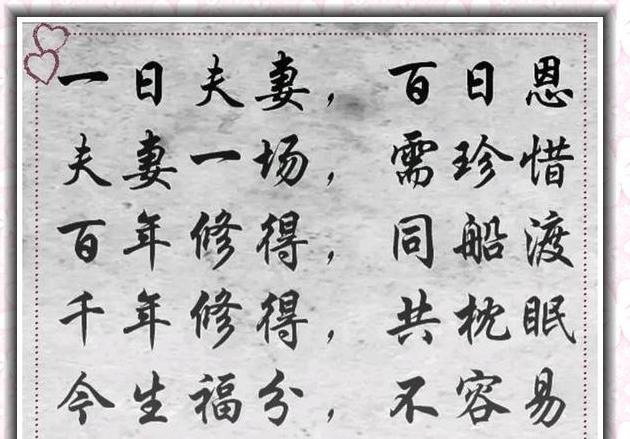 一日夫妻，百日恩
夫妻一场，需珍惜
百年修得，同船渡
千年修得，共枕眠
今生福分，不容易